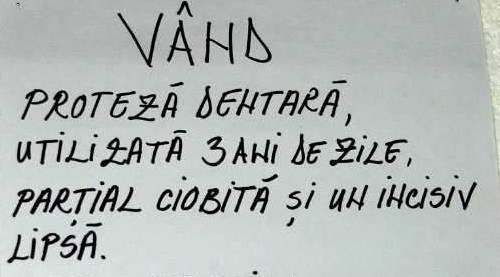 VÂND
PROTEZĂ DENTARĂ,
UTILIZATĂ 3 ANI DE ZILE,
PARȚIAL CIOBITĂ ȘI UN INCISIV
LIPSĂ.